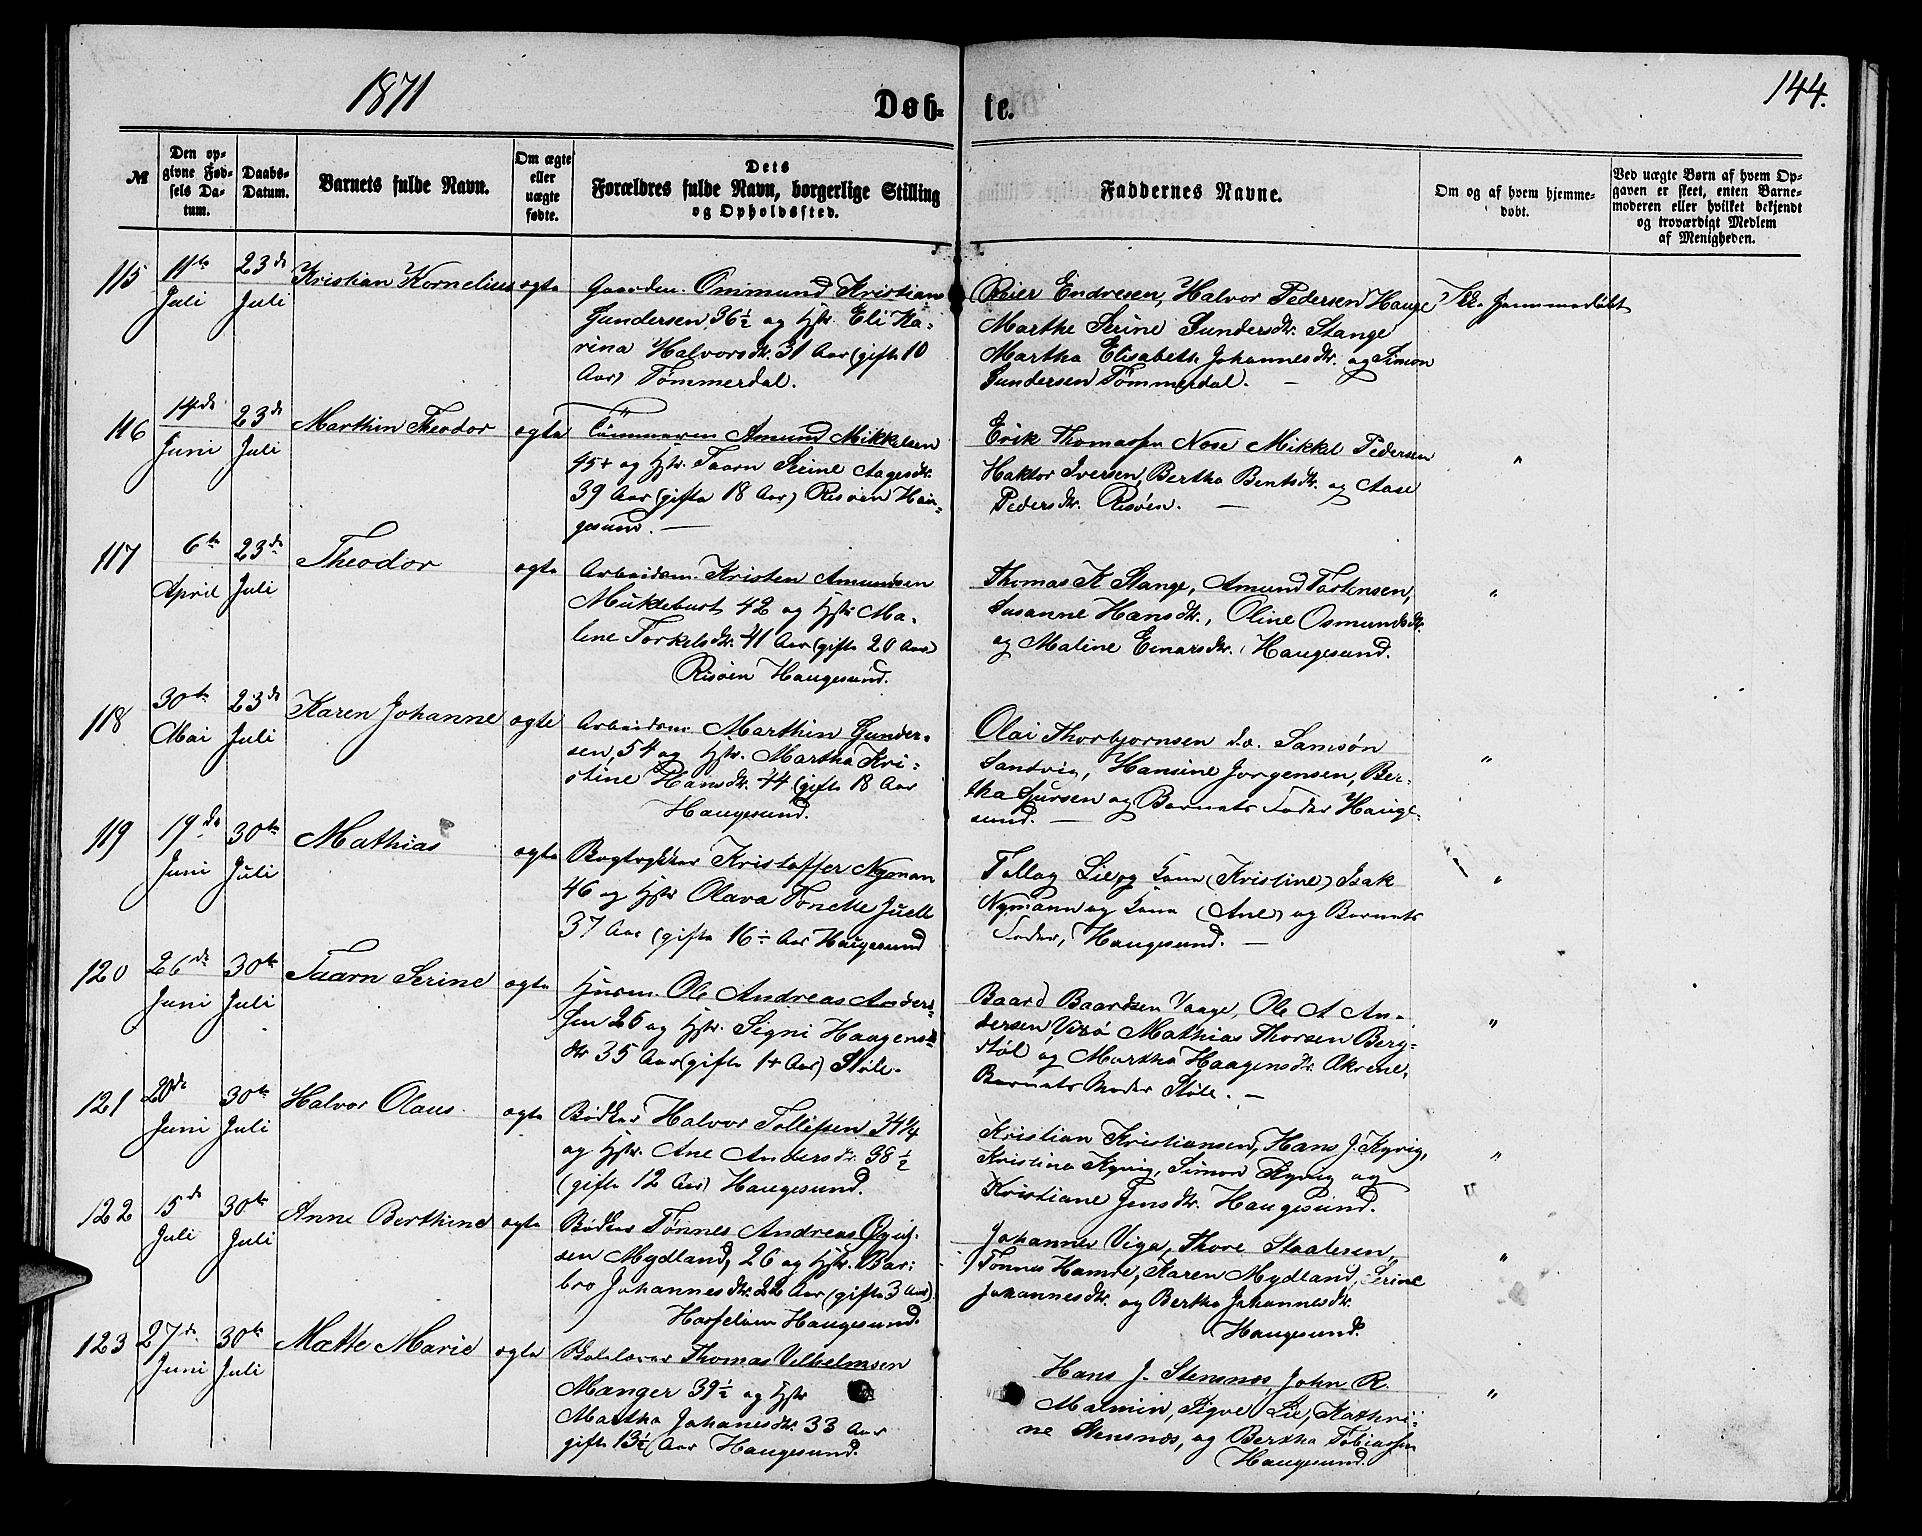 1871
Døb-
te.
144.
№
Den op-
givne Fød-
sels Da-
tum.
Daabs-
Datum.
Barnets fulde Navn.
Om ægte
eller
uægte
fødte.
Dets
Forældres fulde Navn, borgerlige Stilling
og Opholdssted.
Faddernes Navne.
Om og af hvem hjemme-
døbt.
Ved uægte Børn af hvem Op-
gaven er skeet, enten Barne-
moderen eller hvilket bekjendt
og troværdigt Medlem
af Menigheden.
115
11te
Juli
23de
Juli
Kristian Kornelius
ægte
Gaardm. Ommund Kristian
Gundersen 36½ og Hstr. Eli Ka-
rina Halvorsdtr. 31 Aar (gifte 10
Aar) Tømmerdal.
Reier Endresen, Halvor Pedersen Hauge
Marthe Serine Gundersdtr. Stange
Martha Elisabeth Johannesdtr. og Simon
Gundersen Tømmerdal. —
Ikke hjemmedøbt
116
14de
Juni
23de
Juli
Marthin Theodor
ægte
Tømmerm Amund Mikkelsen
45+ og Hstr. Taarn Serine Aagesdtr.
39 Aar (gifte 18 Aar) Risøen Hau-
gesund. —
Erik Thomassen Nose Mikkel Pedersen
Haktor Iversen, Bertha Bentsdtr. og Aase
Pedersdtr. Risøen. —
"
117
6te
April
23de
Juli
Theodor
ægte
Arbeidsm. Kristen Amundsen
Mukleburst 42 og Hstr Ma-
lene Torkelsdtr. 41 Aar (gifte 20 Aar)
Risøen Haugesund.
Thomas K Stange, Amund Torkensen,
Susanne Hansdtr., Oline Osmundsdtr.
og Maline Einarsdtr. Haugesund.
"
118
30te
Mai
23de
Juli
Karen Johanne
ægte
Arbeidsm. Marthin Gunder-
sen, 54 og Hstr. Martha Kri-
stine Hansdtr. 44 (gifte 18 Aar
Haugesund.
Olai Thorbjornsen do. Samsøn
Sandvig, Hansine Jorgensen, Ber-
tha Sjursen og Barnets Fader Hauge-
sund. —
"
119
19de
Juni
30te
Juli
Mathias
ægte
Bogtrykker Kristoffer Nyman
46 og Hstr Olava Tonette Juell
37 Aar (gifte 16½ Aar Haugesund
Tollag Lie og Kone (Kristine) Isak
Nymann og Kone (Ane) og Barnets
Fader, Haugesund. —
"
120
26de
Juni
30te
Juli
Taarn Serine
ægte
Husm. Ole Andreas Ander-
sen 26 og Hstr. Signi Haagens-
dtr 35 Aar (gifte 1+ Aar) Støle.
Baard Baardsen Vaage, Ole A An-
dersen Vixø Mathias Thorsen Berg-
støl og Martha Haagensdtr. Akrene,
Barnets Moder Støle. —
"
121
20de
Juni
30te
Juli
Halvor Olaus.
ægte
Bødker Halvor Tollefsen 34¼
og Hstr. Ane Andersdtr. 38½
(gifte 12 Aar) Haugesund.
Kristian Kristiansen, Hans J. Kyvig,
Kristine Kyvig, Simon Kyvig og
Kristiane Jensdtr. Haugesund.
"
122
15de
Juli
30te
Juli
Anne Berthine
ægte
Bødker Tønnes Andreas
sen Mydland, 26 og Hstr. Bar-
bro Johannesdtr. 22 Aar (gifte 3 Aar).
Hasseløen Haugesund.
Johannes Viga, Thore Staalesen,
Tønnes Hamre, Karen Mydland, Serine
Johannesdtr. og Bertha Johannesdtr.
Haugesund.
"
123
27de
Juni
30te
Juli
Mætte Marie
ægte
Thomas Vilhelmsen
Manger 39½ og Hstr
Martha Johanesdtr. 33 Aar
gifte 13½ (Aar Haugesund.
Hans J. Stensnæs, John R.
Malmin, Sigve Lie, Kathri-
ne Stensnæs, og Bertha Tobiassen
Haugesund.
"